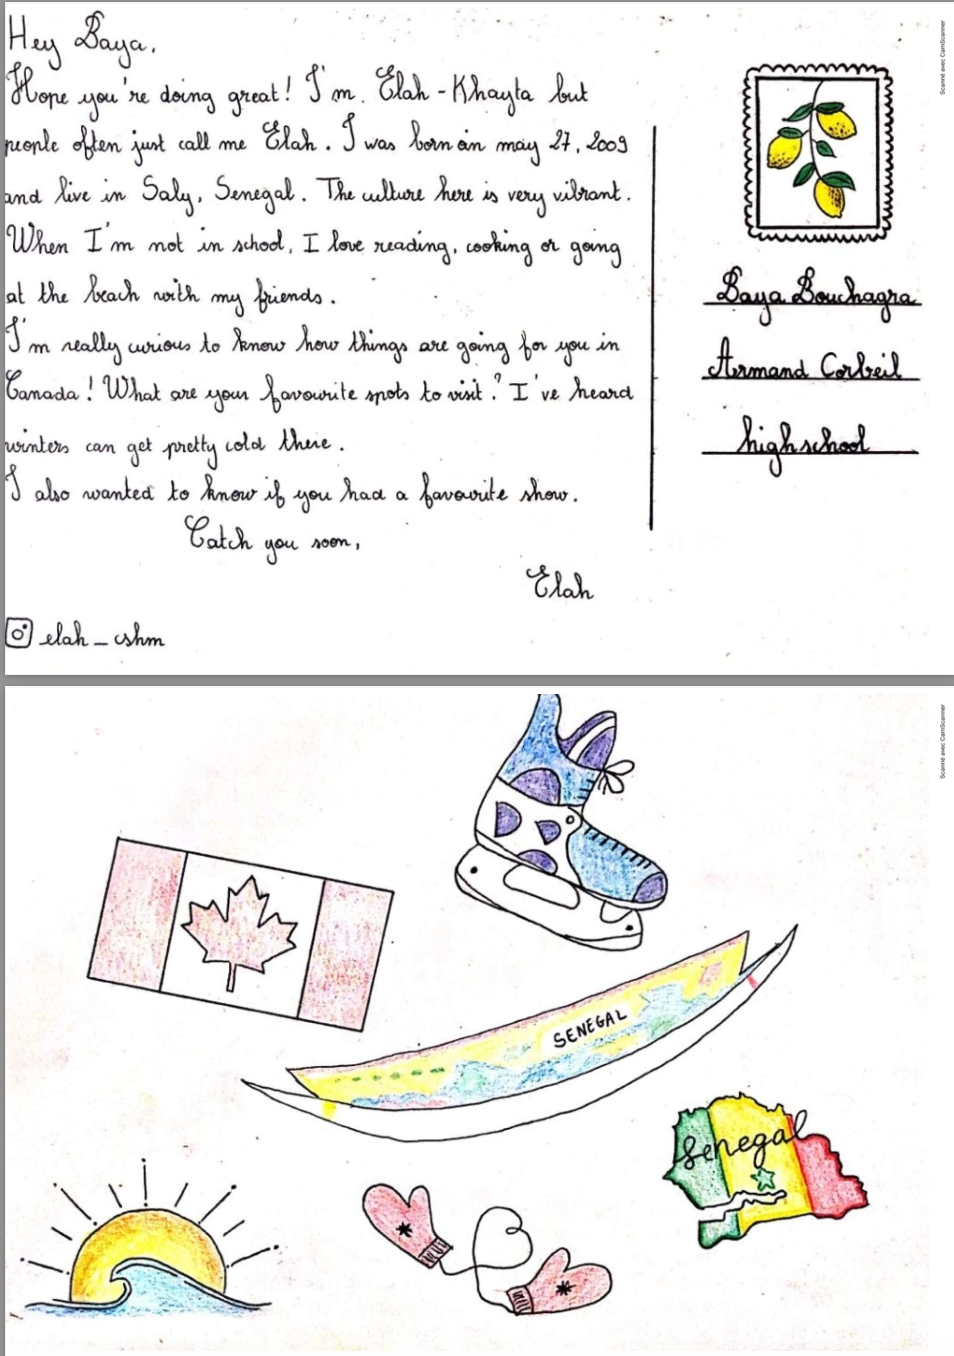 Hey Baya,
Hope you're doing great! I'm Elah-Khayta but
people often just call me Elah. I was born on may 27, 2009
and live in Saly, Senegal. The culture here is very vibrant.
When I'm not in school, I love reading, cooking or going
at the beach with my friends.
I'm really curious to know how things are going for you in
Canada! What are your favourite spots to visit? I've heard
winters can get pretty cold there.
I also wanted to know if you had a favourite show.
Catch you soon,
Elah
elah_cshm
Baya Bouchagra
Armand Corbeil
high school
Scanné avec CamScanner
SENEGAL
Senegal
Scanné avec CamScanner